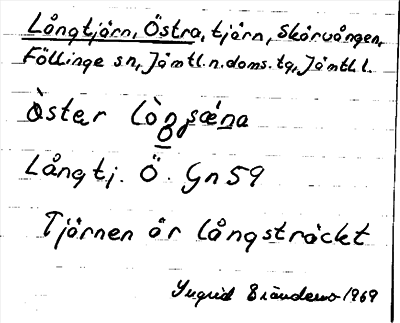 Långtjärn, Östra, tjärn, Skärvången,
Föllinge sn, Jämtl.n.doms.tg, Jämtl.l.
Långtj. Ö. Gn 59
Tjärnen är långsträckt
Ingrid 1969